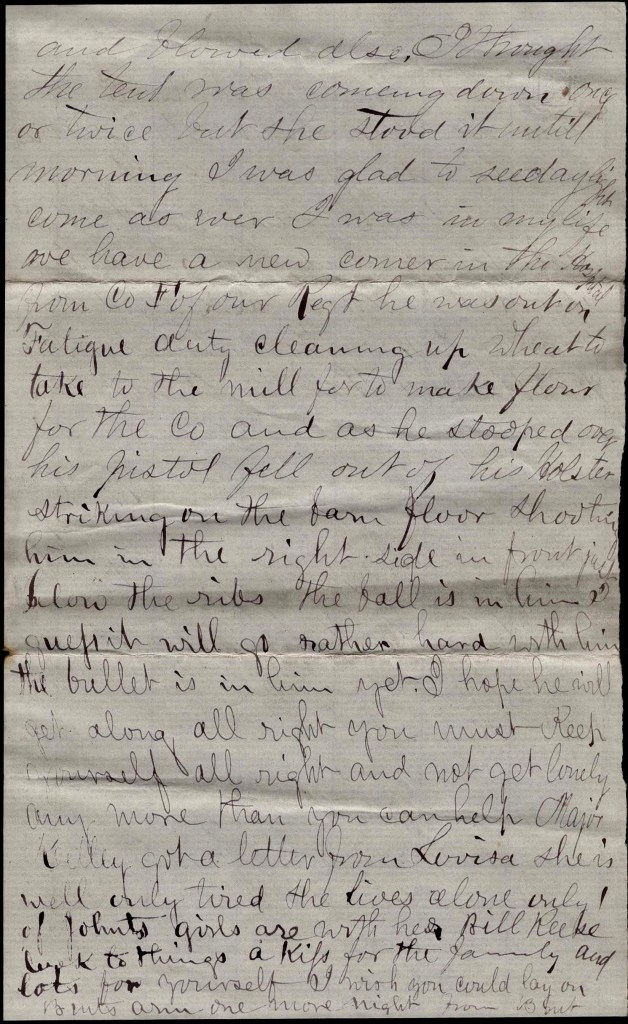 and blowed also. I thought
the tent was comeing down once
or twice but she stood it untill
morning I was glad to see daylight
come as ever I was in my life
we have a new comer in the Hospital
from Co F of our Regt he was out on
Fatigue duty cleaning up wheat to
take to the mill for to make flour
for the Co and as he stooped over
his pistol fell out of his Holster
striking on the barn floor shooting
him in the right side in front just
blow the ribs the ball is in him I
guess it will go rather hard with him
the bullet is in him yet. I hope he will
get along all right you must Keep
yourself all right and not get lonely
any more than you can help Major
Kelley got a letter from Lovisa she is
well only tired she lives alone only 1
of Johns girls are with her Bill Reese
to things a Kiss for the family and
lots for yourself I wish you could lay on
Bruts arm one more night from Brut